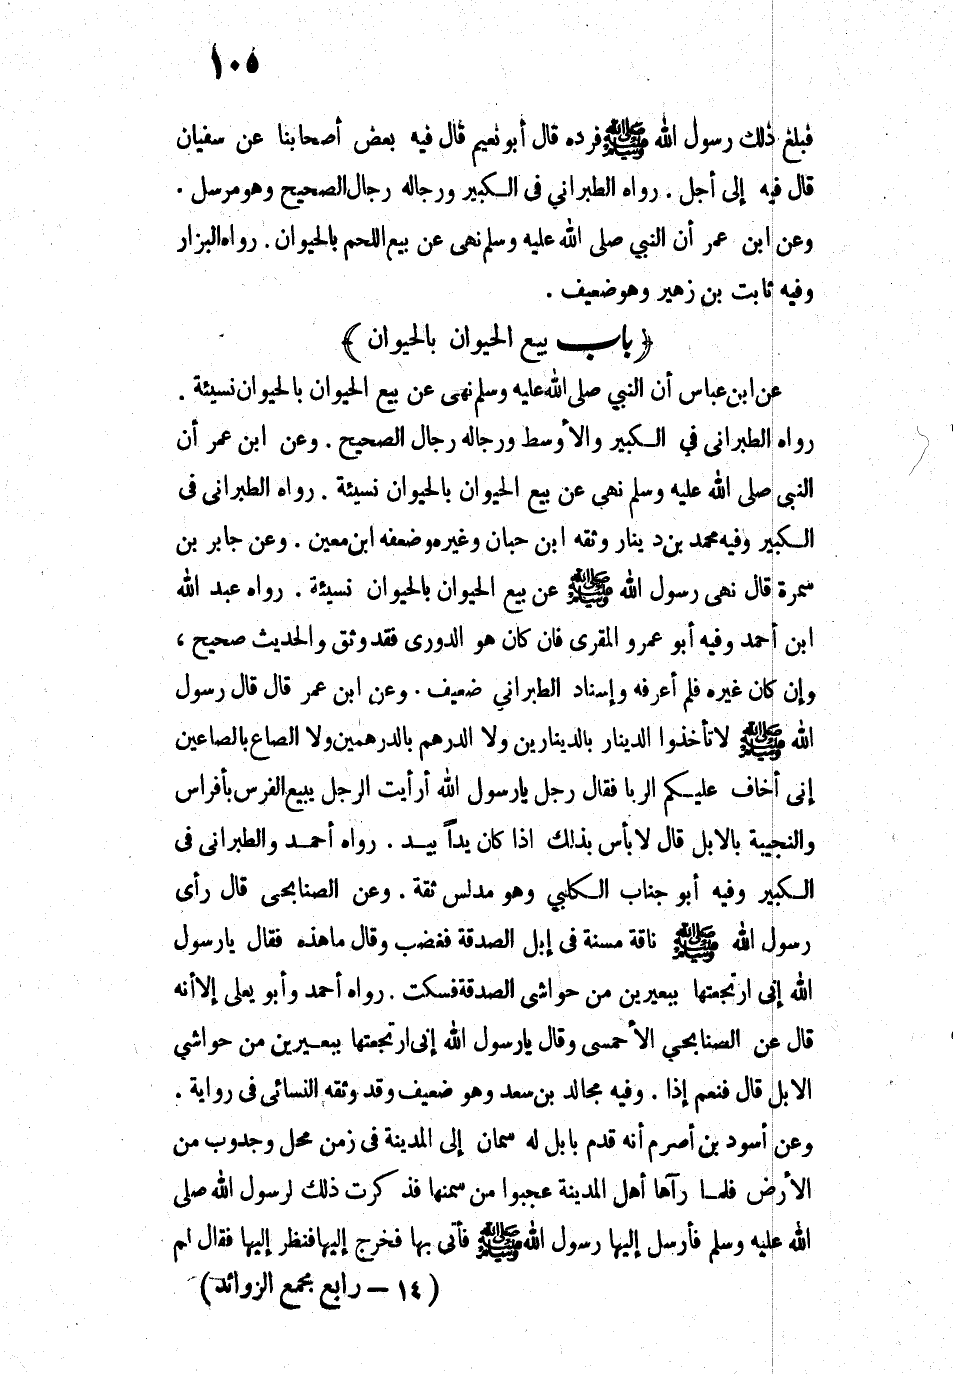 ١٠٥
فبلغ ذلك رسول الله ﷺ فرده قال أبو نعيم قال فيه بعض أصحابنا عن سفيان
قال فيه إلى أجل . رواه الطبراني فى الكبير ورجاله رجال الصحيح وهو مرسل .
وعن ابن عمر أن النبي صلى الله عليه وسلم نهى عن بيع اللحم بالحيوان . رواه البزار
وفيه ثابت بن زهير وهو ضعيف .
﴿ باب بيع الحيوان بالحيوان ﴾
عن ابن عباس أن النبي صلى الله عليه وسلم نهى عن بيع الحيوان بالحيوان نسيئة .
رواه الطبرانى في الكبير والأوسط ورجاله رجال الصحيح . وعن ابن عمر أن
النبى صلى الله عليه وسلم نهى عن بيع الحيوان بالحيوان نسيئة . رواه الطبرانى فى
الكبير وفيه محمد بن دينار وثقه ابن حبان وغيره وضعفه ابن معين . وعن جابر بن
سمرة قال نهى رسول الله ﷺ عن بيع الحيوان بالحيوان نسيئة . رواه عبد الله
ابن أحمد وفيه أبو عمرو المقرى فان كان هو الدورى فقد وثق والحديث صحيح ،
وإن كان غيره فلم أعرفه وإسناد الطبراني ضعيف . وعن ابن عمر قال قال رسول
الله ﷺ لا تأخذوا الدينار بالدينارين ولا الدرهم بالدرهمين ولا الصاع بالصاعين
إنى أخاف عليكم الربا فقال رجل يارسول الله أرأيت الرجل يبيع الفرس بأفراس
والنجيبة بالابل قال لا بأس بذلك اذا كان يداً بيد . رواه أحمد والطبرانى فى
الكبير وفيه أبو جناب الكلبي وهو مدلس ثقة . وعن الصنابحى قال رأى
رسول الله ﷺ ناقة مسنة فى إبل الصدقة فغضب وقال ما هذه فقال يارسول
الله إنى ارتجعتها ببعيرين من حواشى الصدقة فسكت . رواه أحمد وأبو يعلى إلا أنه
قال عن الصنابحي الأحمسى وقال يارسول الله إنى ارتجعتها ببعيرين من حواشي
الابل قال فنعم إذا . وفيه مجالد بن سعد وهو ضعيف وقد وثقه النسائى فى رواية .
وعن أسود بن أصرم أنه قدم بابل له سمان إلى المدينة فى زمن محل وجدوب من
الأرض فلما رآها أهل المدينة عجبوا من سمنها فذكرت ذلك لرسول الله صلى
الله عليه وسلم فأرسل إليها رسول الله ﷺ فأتى بها فخرج إليها فنظر إليها فقال لم
( ١٤ — رابع مجمع الزوائد )